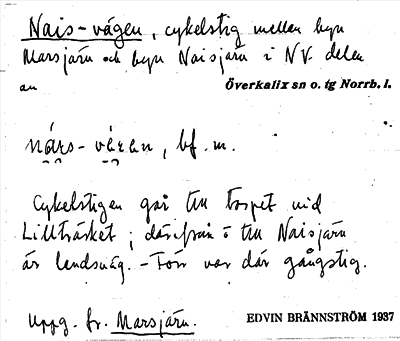 Nais-vägen, cykelstig mellan byn
Marsjärv och byn Naisjärv i NV. delen
av Överkalix sn o. tg Norrb. l.
bf. m.
Cykelstigen går till torpet vid
Lillträsket; därifrån ö till Naisjärv
är landsväg. - Förr var där gångstig.
Uppg. fr. Marsjärv.
EDVIN BRÄNNSTRÖM 1937